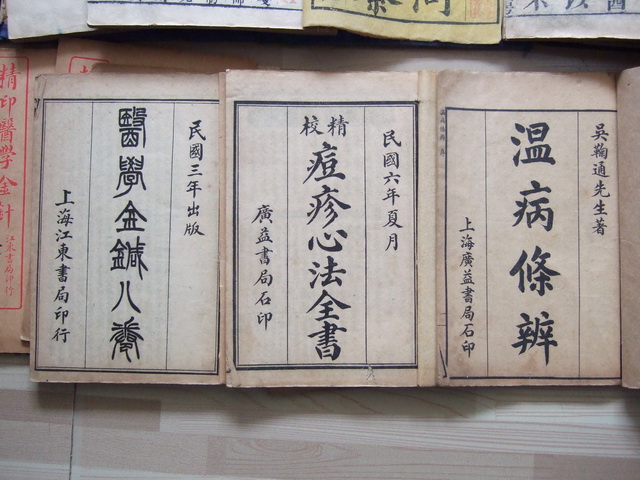 精印醫學金針
江東書局印行
民國三年出版
醫學金鍼八卷
上海江東書局印行
民國六年夏月
精校
痘疹心法全書
廣益書局石印
吳鞠通先生著
温病條辨
上海廣益書局石印